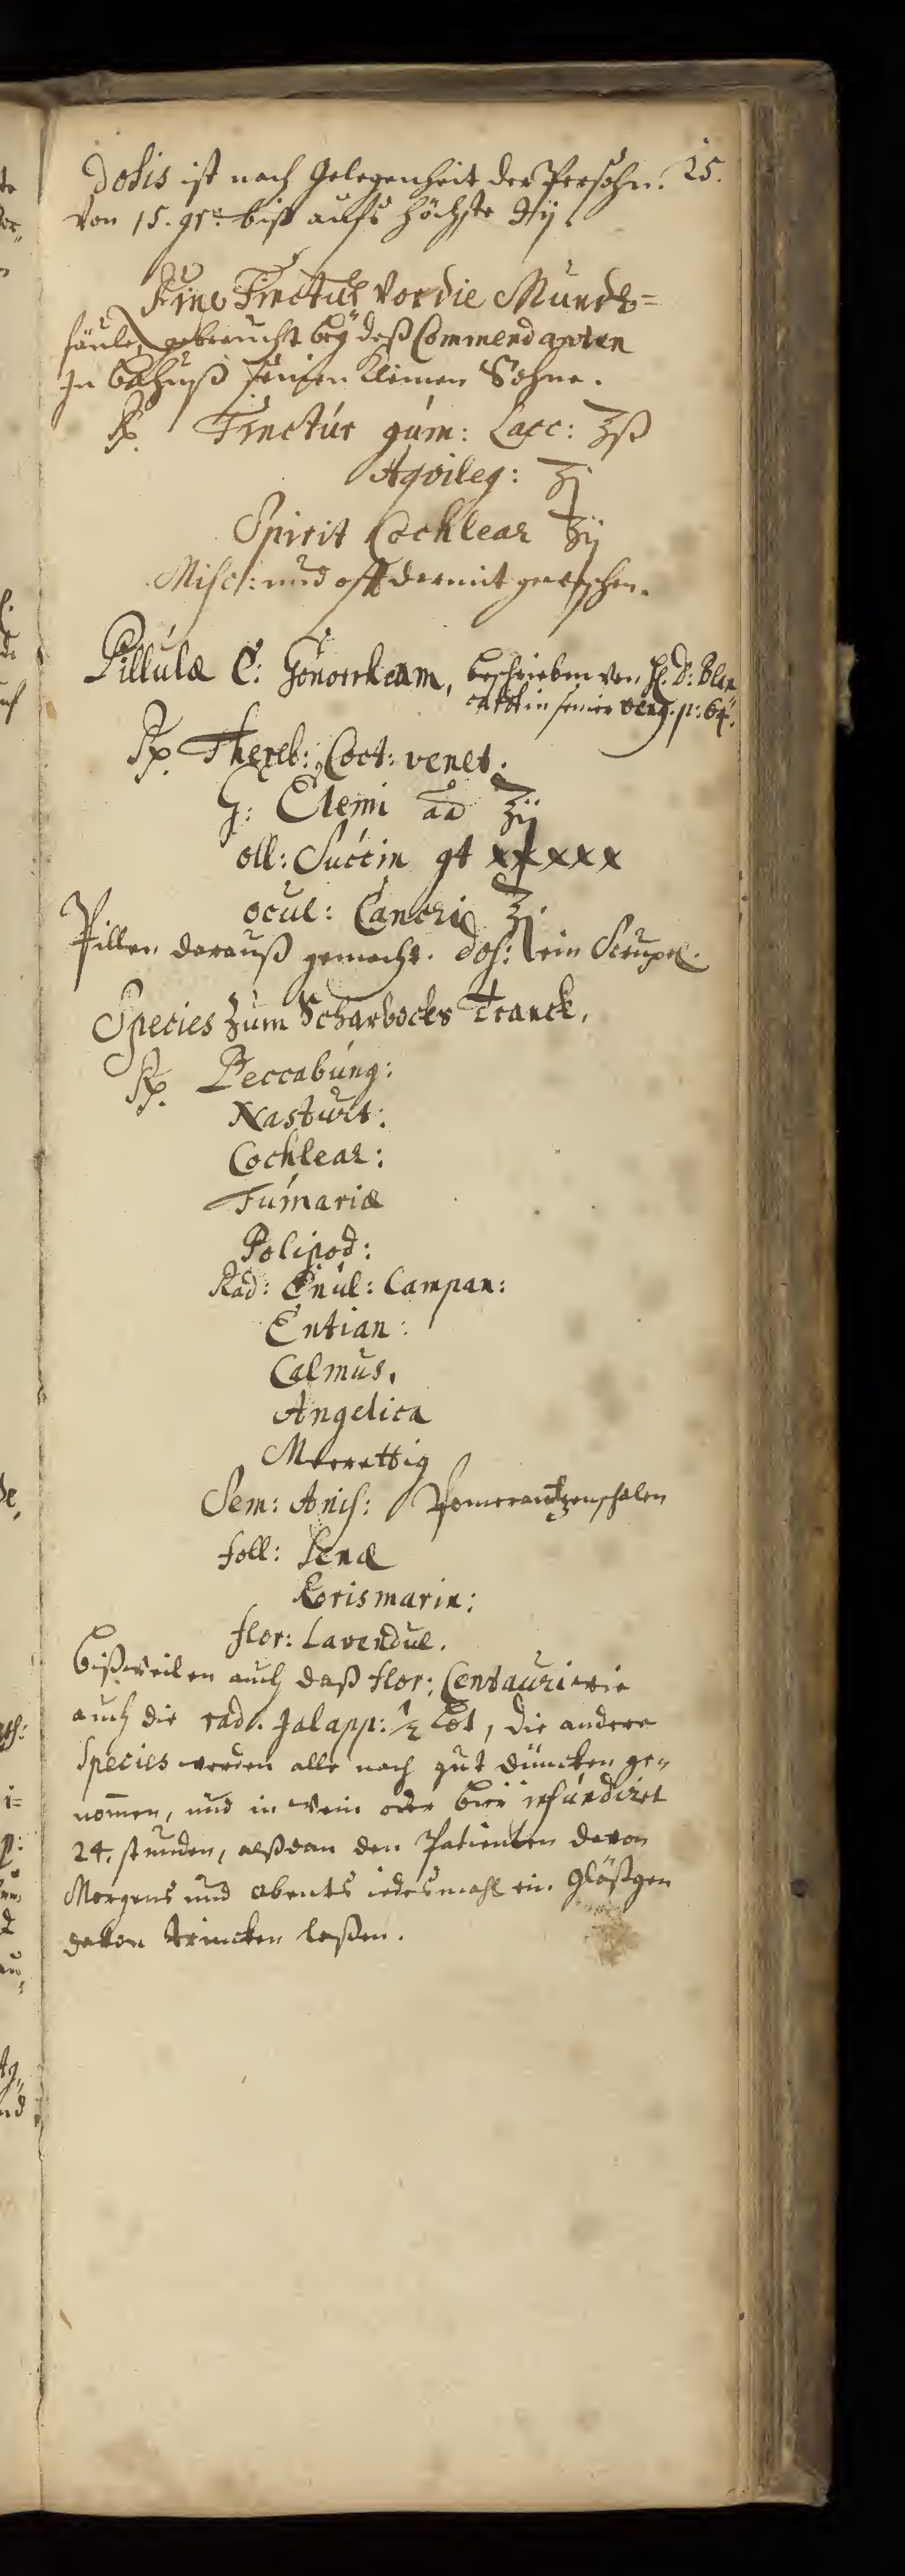 Dosis ist nach Gelegenheit der Persohn. 25.
Von 15. gr: biß aufs höchste ℈ij.
Eine Tinctur Vor die Mundt=
fäule, gebraucht beÿ deß Commendanten
In Bahuß seinen Kleinen Sohne.
Rp. Tinctúr gúm: Lacc: ʒß
Aqvileg: ʒj
Spirit Cochlear ʒij
Misc: und offt darmit gewaschen.
Pillulæ C: Gonorrheam, beschrieben von H: D: Blan
cardt in seiner Vener. p: 64.
Rp. Thereb: Coct: venet:
G: Elemi āā ʒij
oll: Succin gt xxxxx
ocul: Cancri ʒj.
Pillen darauß gemacht. Dos: ein Scrupel.
Species Zum Scharbocks Tranck.
Rp. Beccabúng:
Nasturt:
Cochlear:
Fúmariæ
Polipod:
Rad: Enúl: Campan:
Entian:
Calmus.
Angelica
Meerettig
Sem: Anis: Pomerantzenschalen
foll: Senæ
Rorismarin:
flor: Lavendul.
Bißweilen auch daß flor: Centauri wie
auch die rad. Jalapp: ½ Lot, die andere
Species werden alle nach gut düncken ge=
nom̄en, und in Wein oder Bier infúndiret
24. stunden, alßdan den Patienten davon
Morgens und abents iedesmahl ein Gläßgen
davon trincken laßen.